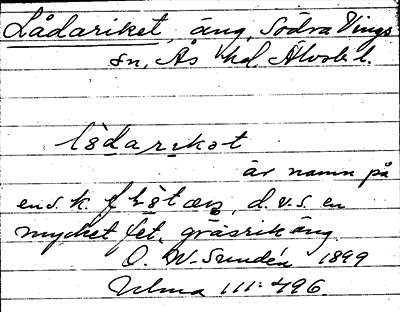 Lådariket, äng, Södra Vings
sn, Ås hd, Älvsb. l.
lådarikət
är namn på
en s. k. , d. v. s. en
mycket fet, gräsrik äng.
O. W-Sundén 1899
Ulma 111:496.